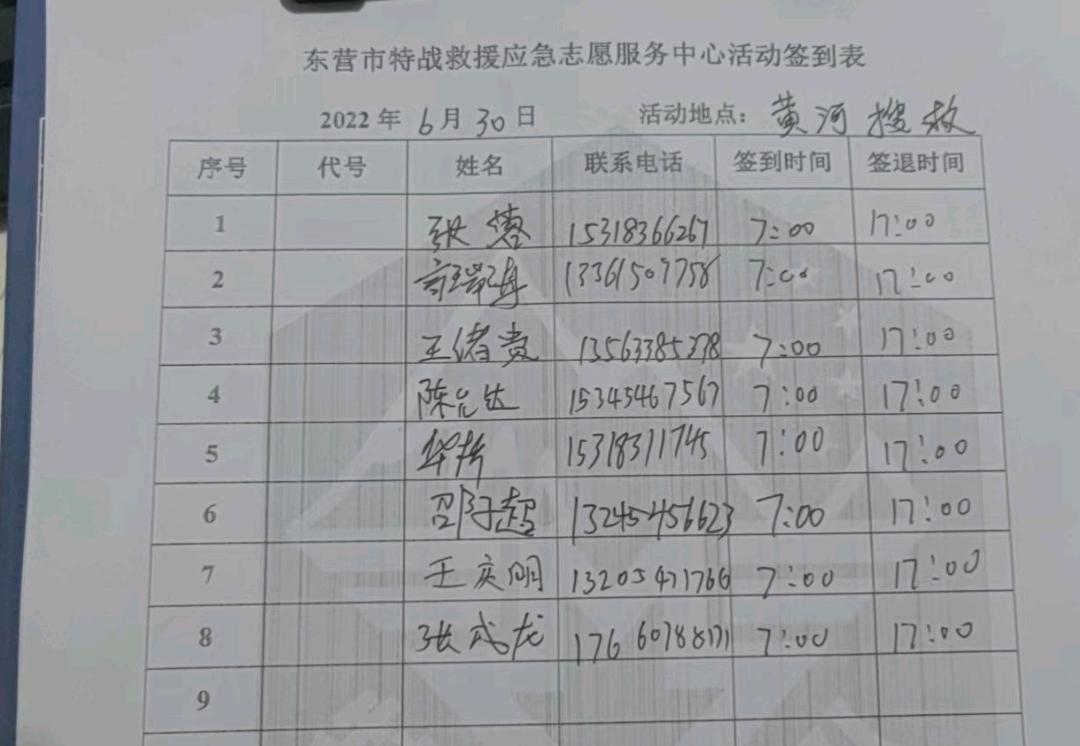 东营市特战救援应急志愿服务中心活动签到表
2022 年 6 月 30 日 活动地点: 黄河搜救
序号 代号 姓名 联系电话 签到时间 签退时间
1 张蓉 15318366267 7:00 17:00
2 13361507758 7:00 17:00
3 王绪贵 13563385378 7:00 17:00
4 陈允达 15345467567 7:00 17:00
5 15318311745 7:00 17:00
6 邵子超 13245456623 7:00 17:00
7 王庆明 13205471766 7:00 17:00
8 张成龙 17660788171 7:00 17:00
9